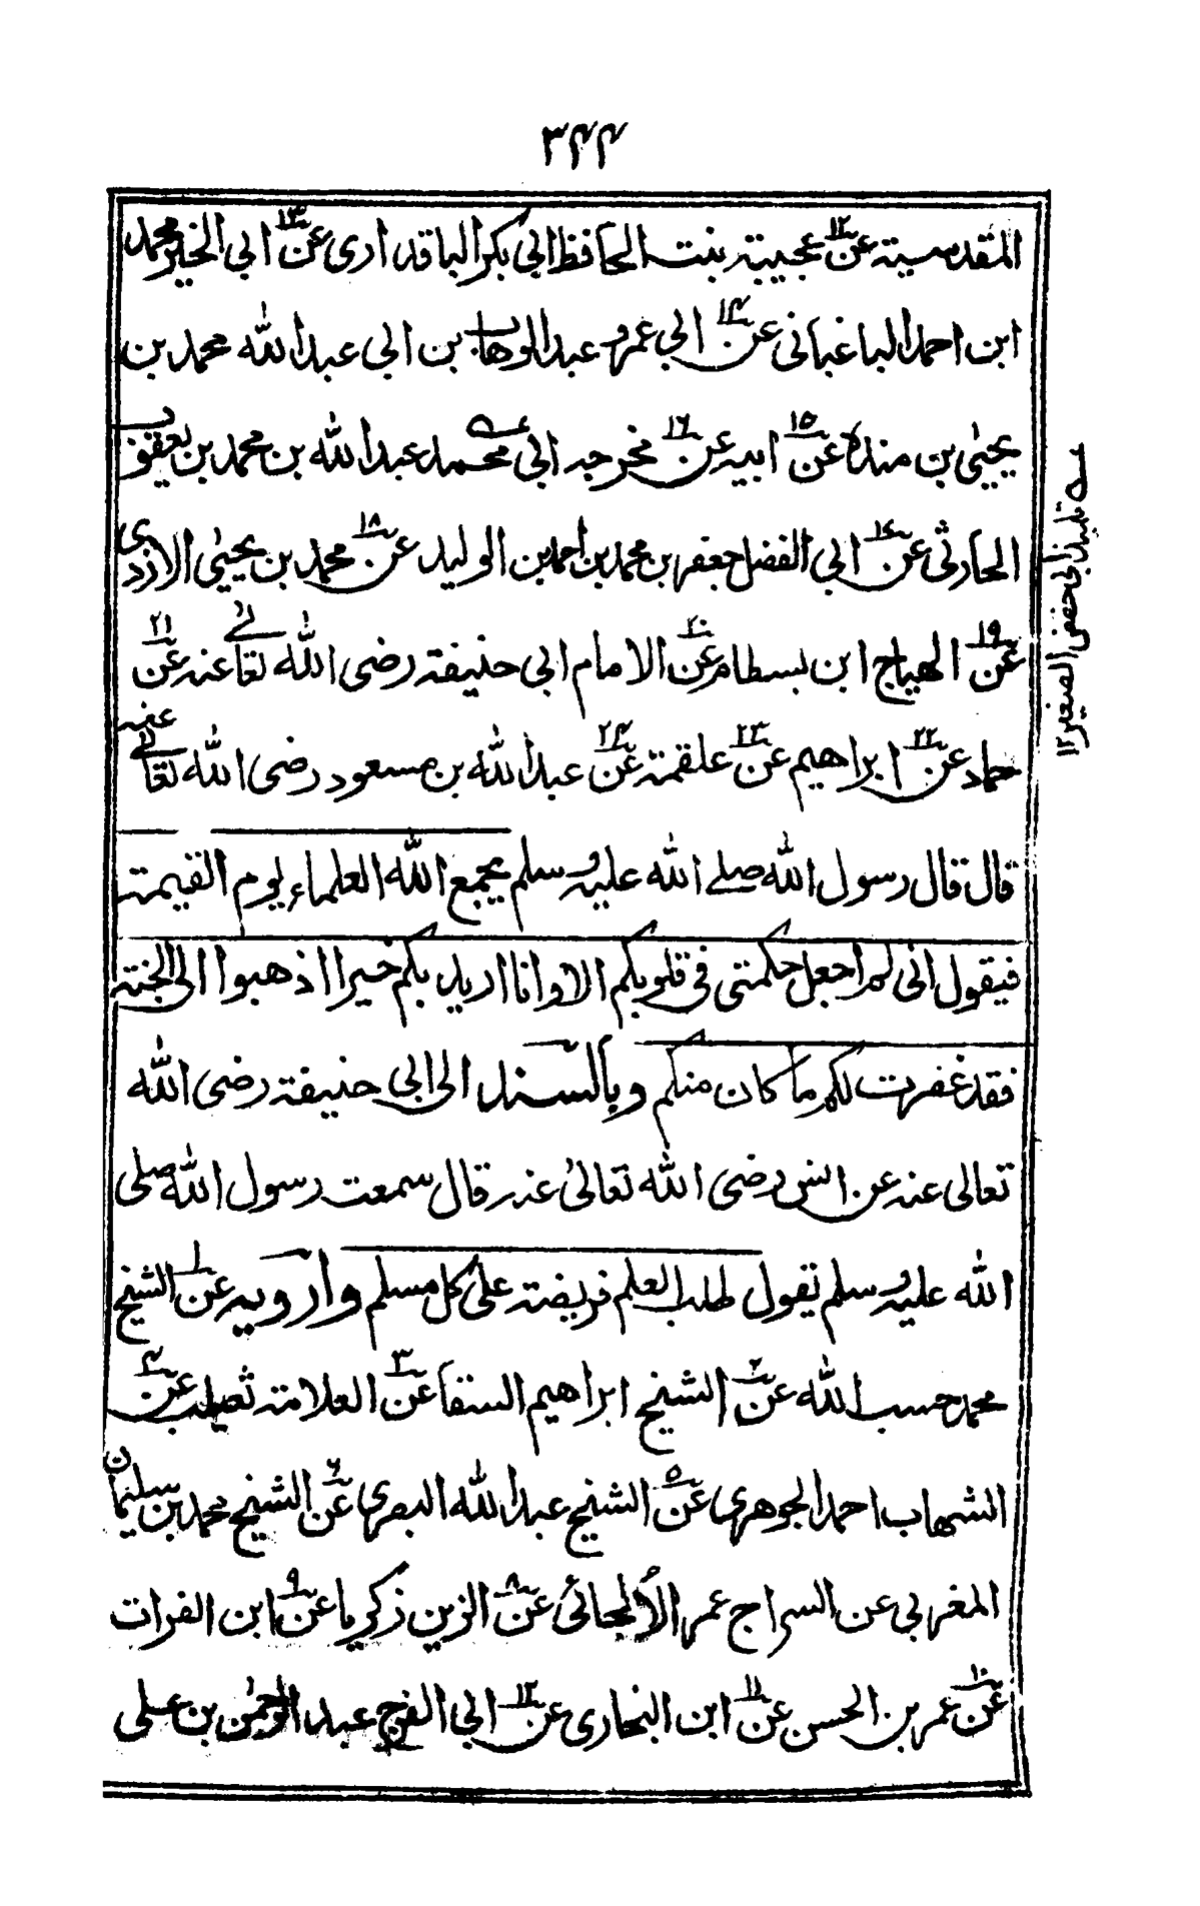 ٣٤٤
المقدسية عن ١٢ عجيبة بنت الحافظ ابي بكر الباقداری عن ١٣ ابي الخير محمد
ابن احمد الباغبانی عن ١٤ ابي عمرو عبد الوهاب بن ابی عبد الله محمد بن
يحيىٰ بن مندہ عن ١٥ ابيه عن ١٦ مخرجه ابی محمد عبد الله بن محمد بن يعقوب
الحارثی عن ١٧ ابي الفضل جعفر بن محمد بن احمد بن الوليد عن ١٨ محمد بن يحيىٰ الازدی
عن ١٩ الهياج ابن بسطام عن ٢٠ الامام ابی حنيفة رضی الله تعالےٰ عنه عن ٢١
حماد عن ٢٢ ابراهيم عن ٢٣ علقمة عن ٢٤ عبد الله بن مسعود رضی الله تعالےٰ عنه
قال قال رسول الله صلے الله عليه وسلم يجمع الله العلماء يوم القيمة
فيقول انی لم اجعل حكمتی فی قلوبكم الا وانا اريد بكم خيرا اذهبوا الى الجنة
فقد غفرت لكم ما كان منكم وبالسند الى ابي حنيفة رضی الله
تعالى عنه عن انس رضی الله تعالیٰ عنه قال سمعت رسول الله صلی
الله عليه وسلم يقول طلب العلم فريضة علی كل مسلم وارويه عن ١ الشيخ
محمد حسب الله عن ٢ الشيخ ابراهيم السقا عن ٣ العلامة ثعيلب عن ٤
الشهاب احمد الجوهری عن ٥ الشيخ عبد الله البصری عن ٦ الشيخ محمد بن سليمان
المغربی عن السراج عمر الألجائی عن ٨ الزين زكريا عن ٩ ابن الفرات
عن ١٠ عمر بن الحسن عن ١١ ابن البخاری عن ١٢ ابي الفرج عبد الرحمٰن بن علی
تلميذ ابی حفص الصغير ١٢